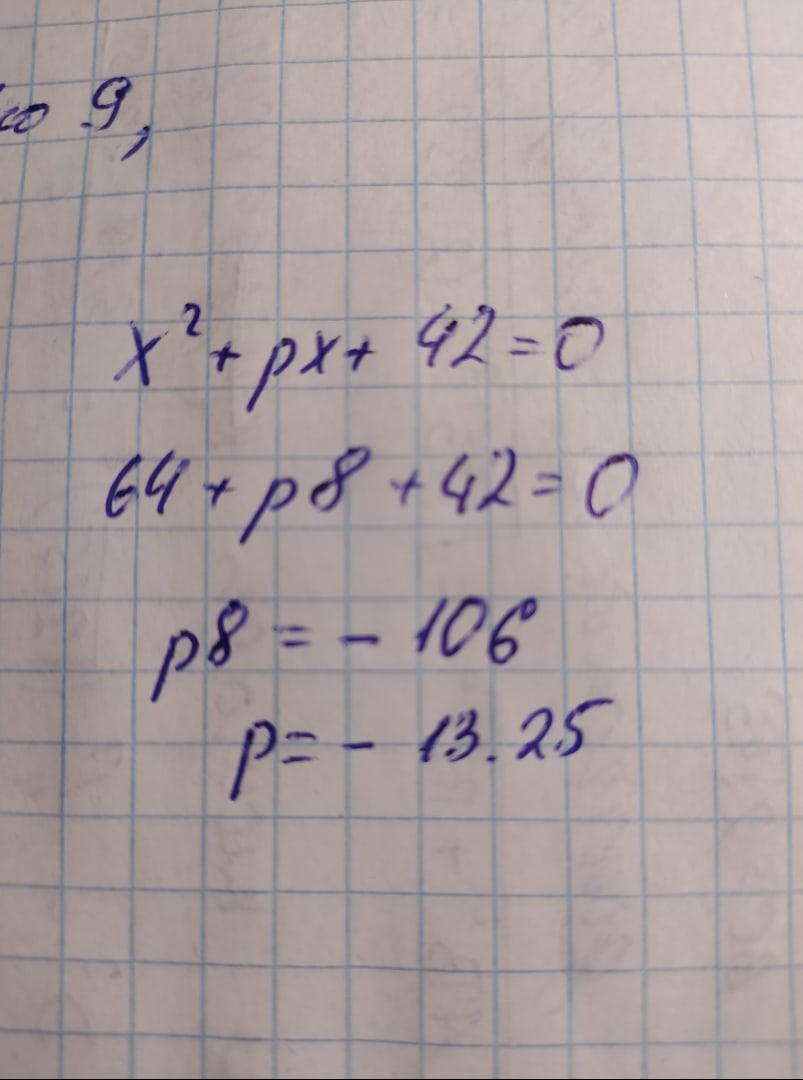 9,
x² + px + 42 = 0
64 + p8 + 42 = 0
p8 = - 106
p = - 13.25